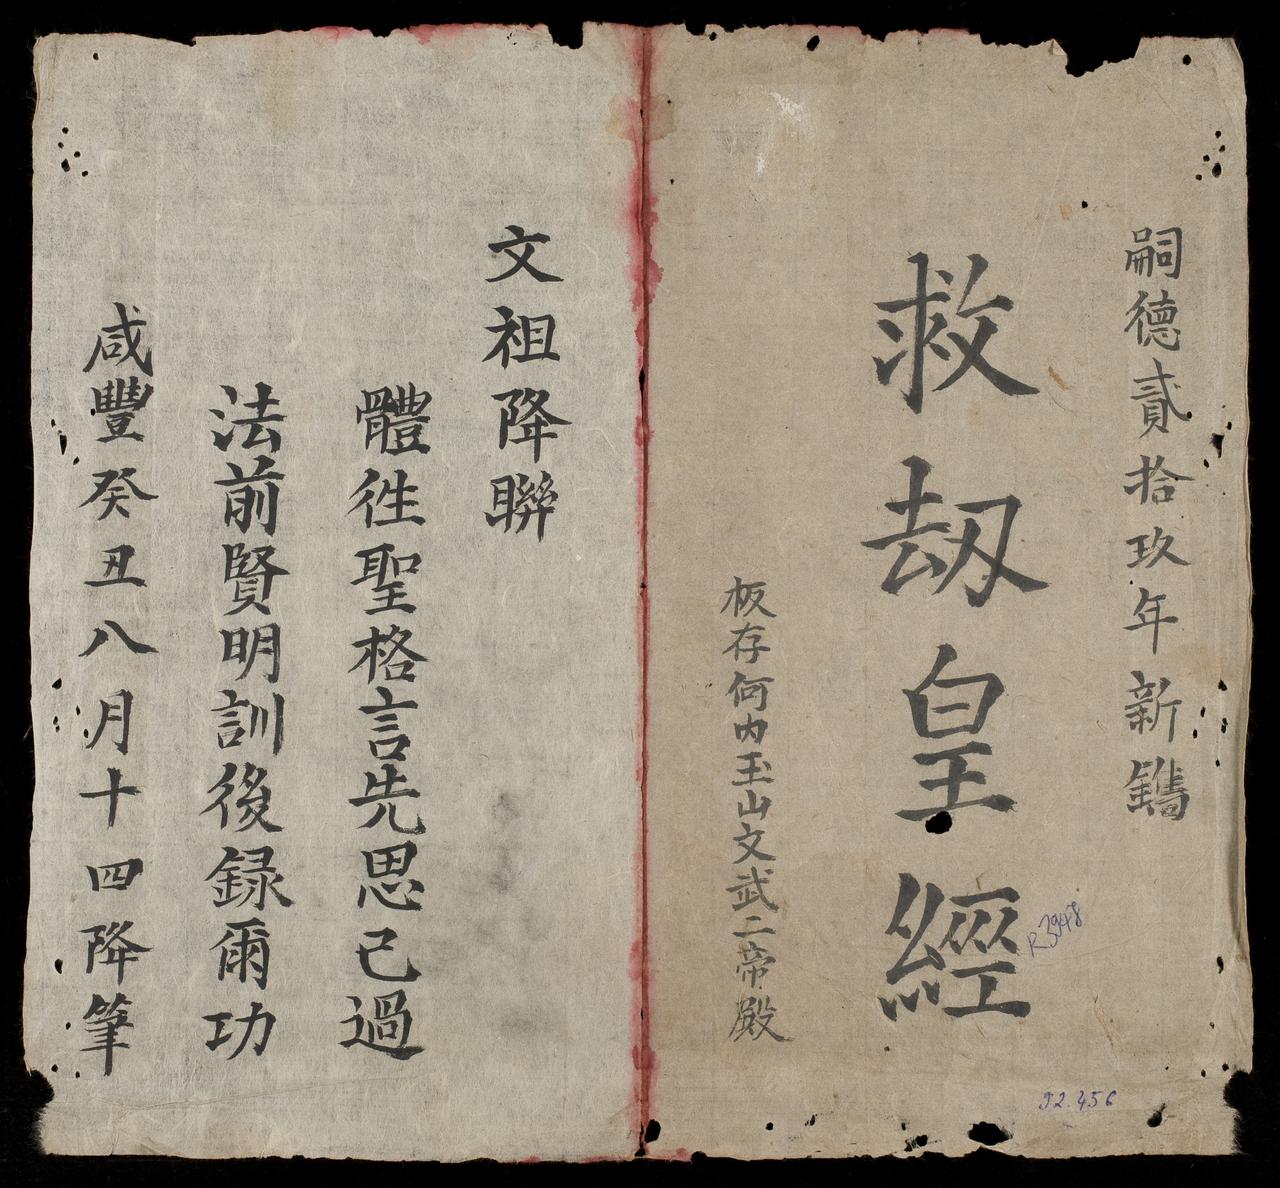 嗣德貳拾玖年新鐫
救刼皇經
板存何內玉山文武二帝殿
R3948
92.456
文祖降聯
體徃聖格言先思己過
法前賢明訓後録爾功
咸豐癸丑八月十四降筆